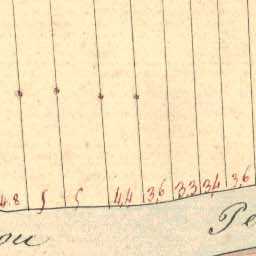 4,8 5 5 4,4 3,6 3,3 3,4 3,6
Pe
ou